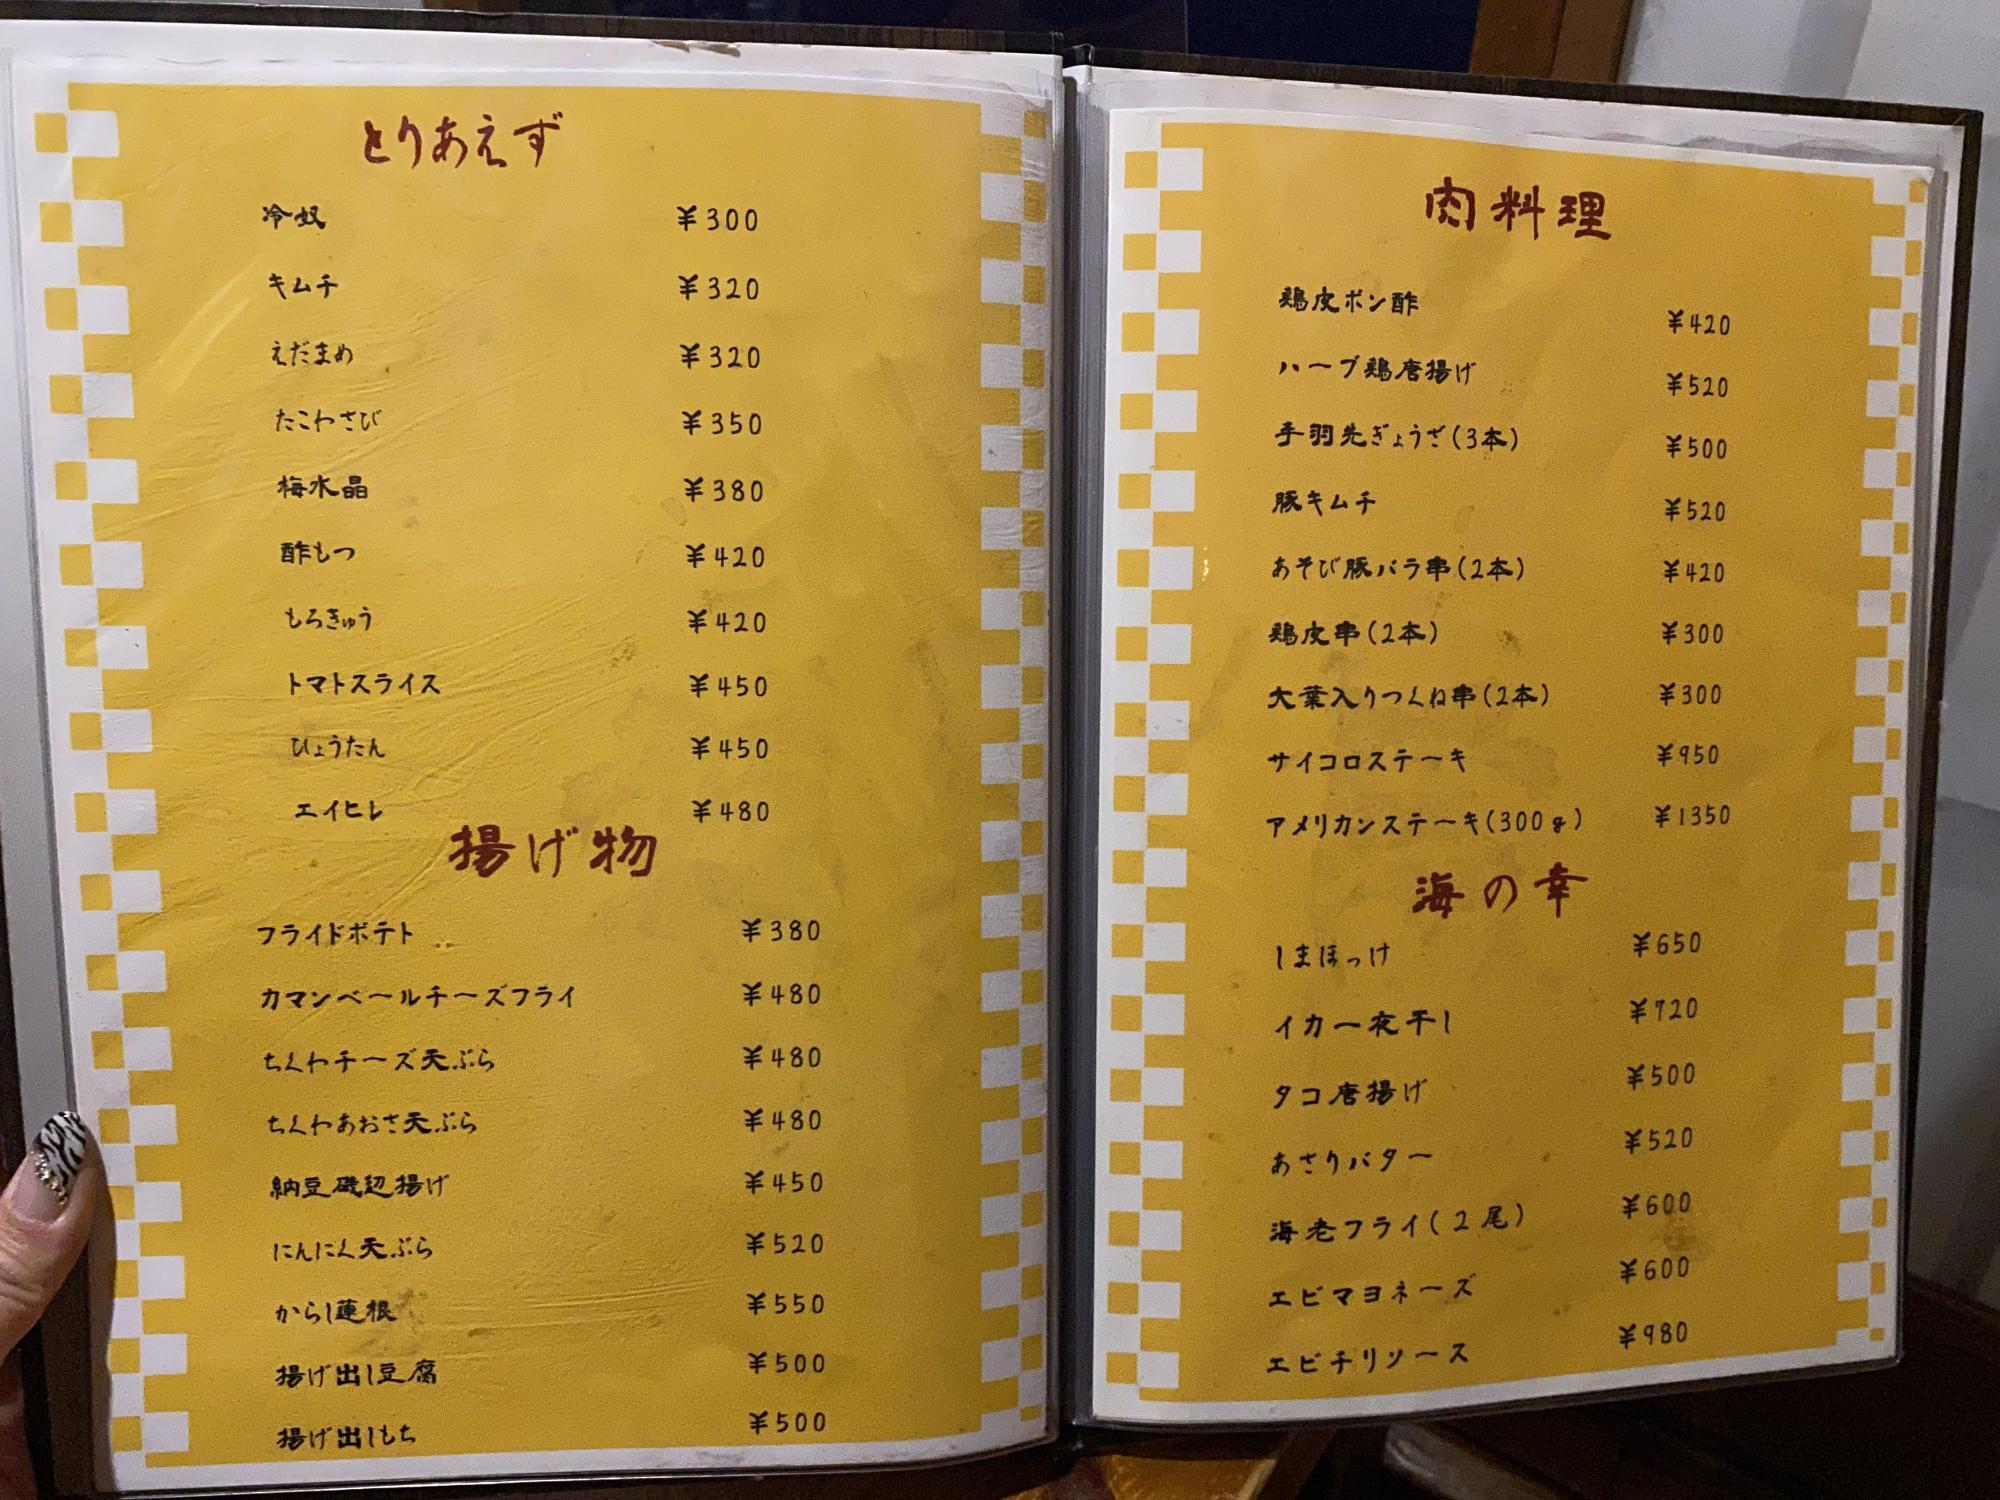 とりあえず
冷奴 ¥300
キムチ ¥320
えだまめ ¥320
たこわさび ¥350
梅水晶 ¥380
酢もつ ¥420
もろきゅう ¥420
トマトスライス ¥450
ひょうたん ¥450
エイヒレ ¥480
揚げ物
フライドポテト ¥380
カマンベールチーズフライ ¥480
ちくわチーズ天ぷら ¥480
ちくわあおさ天ぷら ¥480
納豆磯辺揚げ ¥450
にんにく天ぷら ¥520
からし蓮根 ¥550
揚げ出し豆腐 ¥500
揚げ出しもち ¥500
肉料理
鶏皮ポン酢 ¥420
ハーブ鶏唐揚げ ¥520
手羽先ぎょうざ(3本) ¥500
豚キムチ ¥520
あそび豚バラ串(2本) ¥420
鶏皮串(2本) ¥300
大葉入りつくね串(2本) ¥300
サイコロステーキ ¥950
アメリカンステーキ(300g) ¥1350
海の幸
しまほっけ ¥650
イカ一夜干し ¥720
タコ唐揚げ ¥500
あさりバター ¥520
海老フライ(2尾) ¥600
エビマヨネーズ ¥600
エビチリソース ¥980